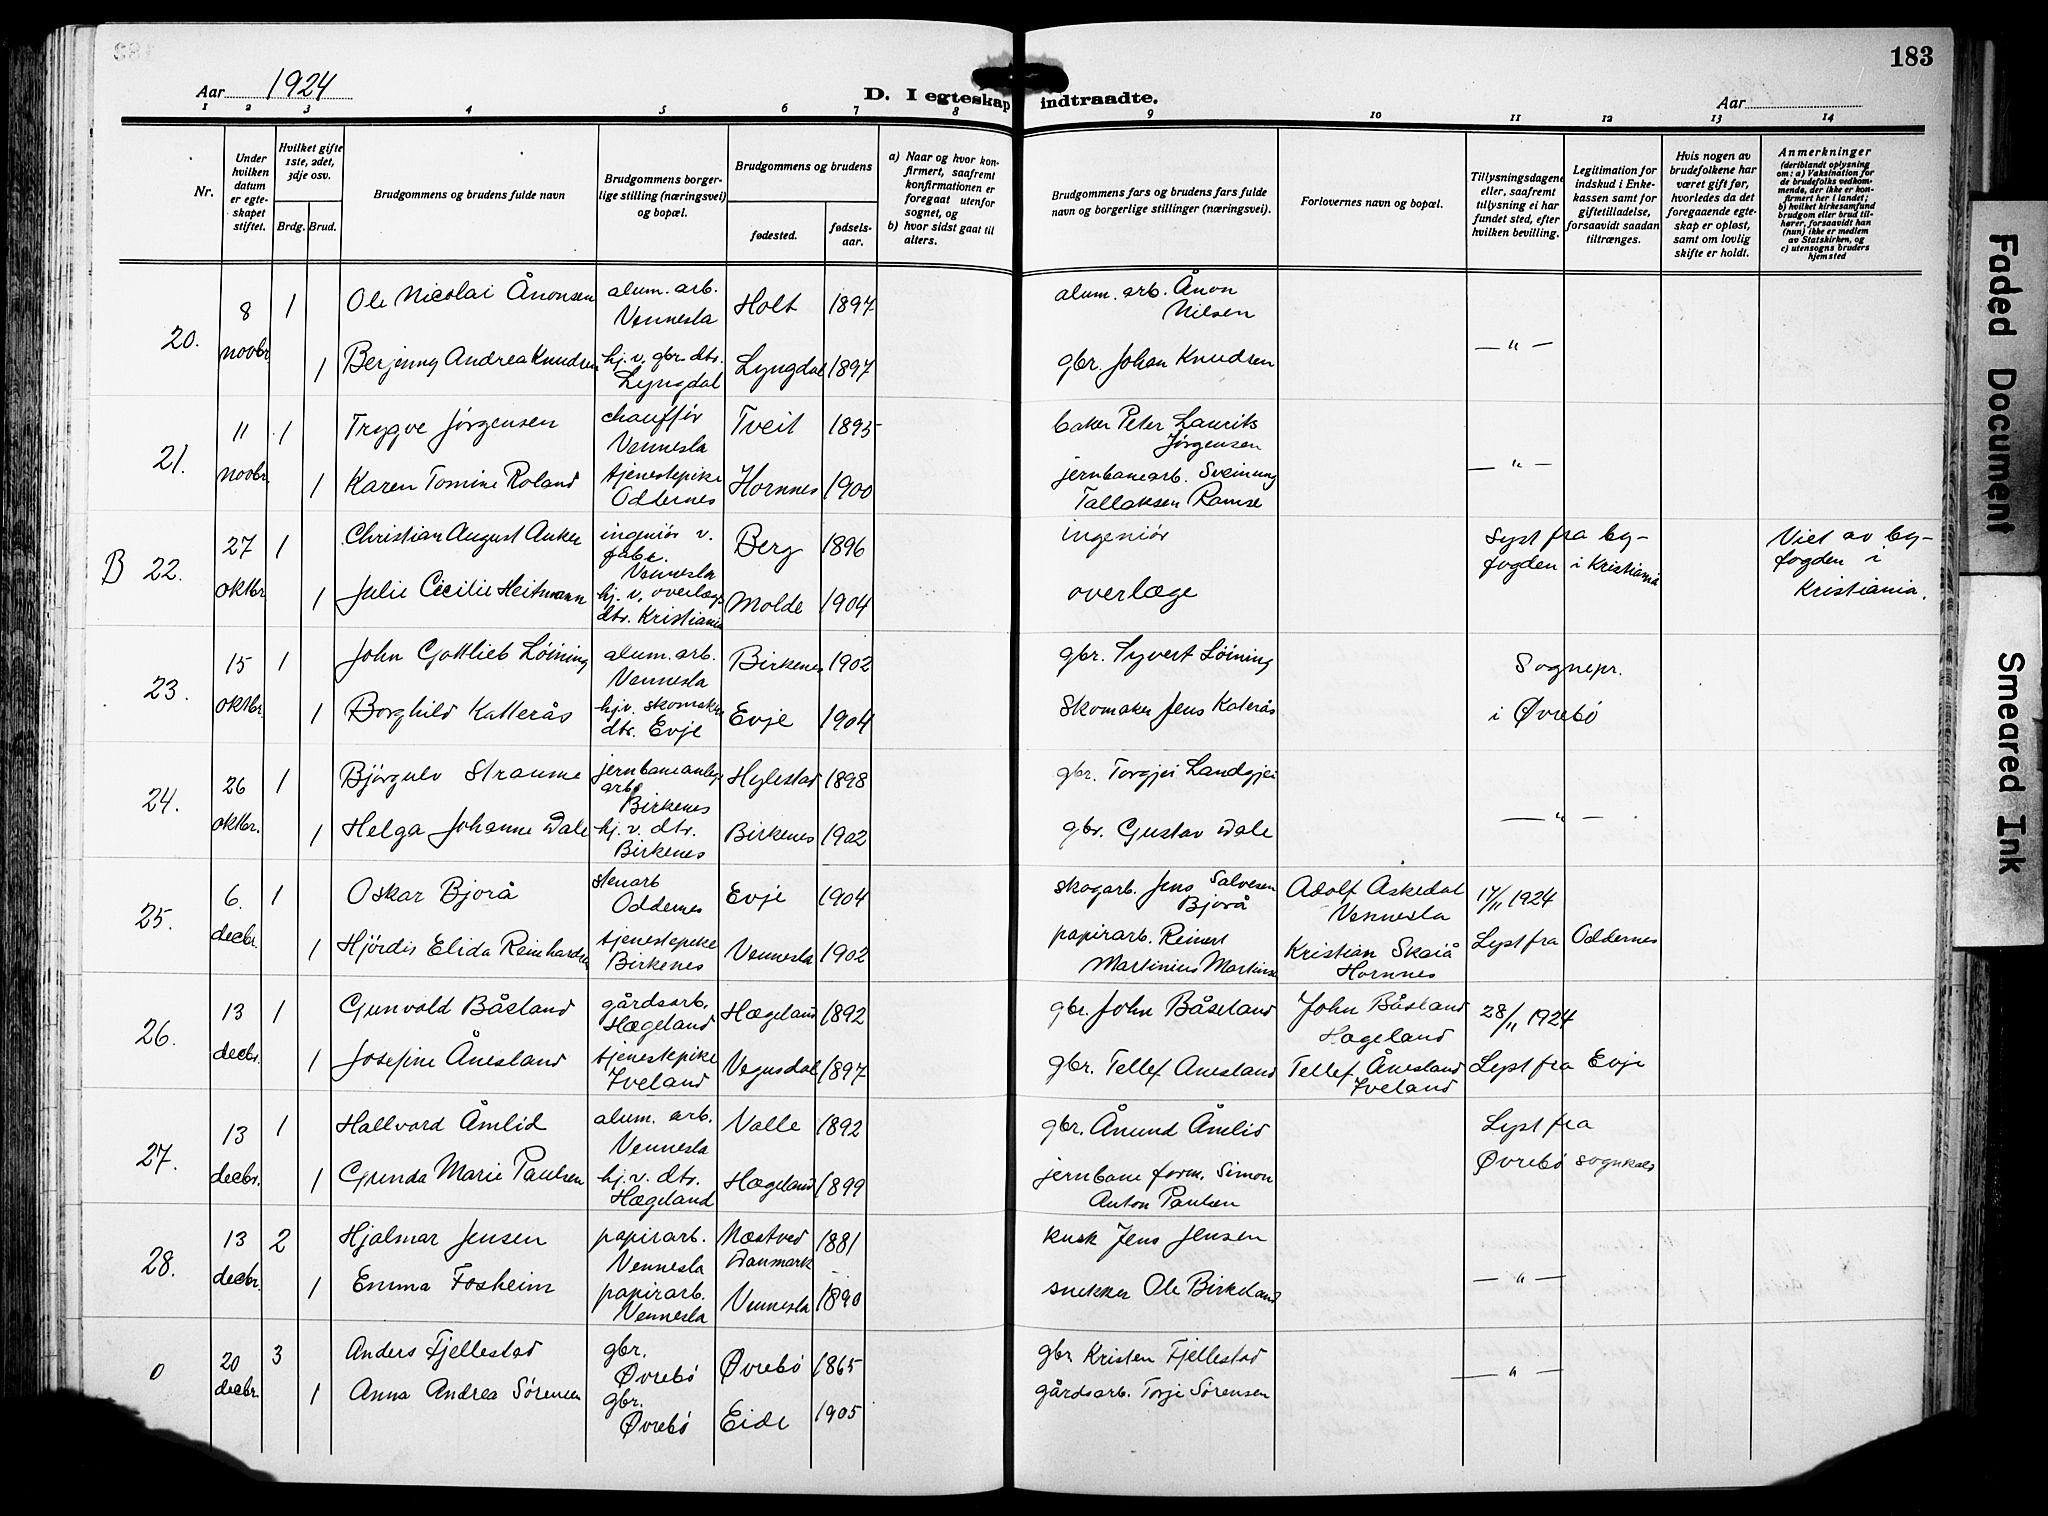 183
Aar 1924
D. I egteskap indtraadte.
Aar
1 2 3 4 5 6 7 8 9 10 11 12 13 14
Nr.
Under hvilken datum er egteskapet stiftet.
Hvilket gifte 1ste, 2det, 3dje osv.
Brdg. Brud.
Brudgommens og brudens fulde navn
Brudgommens borgerlige stilling (næringsvei) og bopæl.
Brudgommens og brudens
fødested.
fødselsaar.
a) Naar og hvor konfirmert, saafremt konfirmationen er foregaat utenfor sognet, og
b) hvor sidst gaat til alters.
Brudgommens fars og brudens fars fulde navn og borgerlige stillinger (næringsvei).
Forlovernes navn og bopæl.
Tillysningsdagene eller, saafremt tillysning ei har fundet sted, efter hvilken bevilling.
Legitimation for indskud i Enkekassen samt for giftetilladelse, forsaavidt saadan tiltrænges.
Hvis nogen av brudefolkene har været gift før, hvorledes da det foregaaende egteskap er opløst, samt om lovlig skifte er holdt.
Anmerkninger
(deriblandt oplysning om: a) Vaksination for de brudefolks vedkommende, der ikke er konfirmert her i landet;
b) hvilket kirkesamfund brudgom eller brud tilhører, forsaavidt han (hun) ikke er medlem av Statskirken, og
c) utensogns bruders hjemsted
20. 8 novbr. 1 Ole Nicolai Ånonsen alum. arb. Vennesla Holt 1897 alum. arb. Ånon Nilsen
1 Berjinny Andrea Knudsen hj. v. gbr. dtr. Lyngdal Lyngdal 1897 gbr. Johan Knudsen — " —
21. 11 novbr. 1 Trygve Jørgensen chauffør Vennesla Tveit 1895 baker Peter Laurits Jørgensen
1 Karen Tomine Roland tjenestepike Oddernes Hornnes 1900 jernbanearb. Sveinung Tallaksen Ramse — " —
B 22. 27 oktbr. 1 Christian August Anker ingeniør v. fabr. Vennesla Berg 1896 ingeniør Lyst fra byfogden i Kristiania Viet av byfogden i Kristiania.
1 Julie Cecilie Heitmann hj. v. overlæge dtr. Kristiania Molde 1904 overlæge
23. 15 oktbr. 1 John Gottlieb Löining alum. arb. Vennesla Birkenes 1902 gbr. Syvert Löining Sognepr. i Øvrebö
1 Borghild Katterås hj.v. skomaker dtr. Evje Evje 1904 Skomaker Jens Katerås
24. 26 oktbr. 1 Björgulv Straume jernbaneanlegs arb. Birkenes Hylestad 1898 gbr. Torgjei Landgjei
1 Helga Johanne Dale hj. v. dtr. Birkenes Birkenes 1902 gbr. Gustav Dale — " —
25. 6. decbr. 1 Oskar Bjorå stenarb Oddernes Evje 1904 skogarb. Jens Salvesen Bjorå Adolf Askedal Vennesla 17/11 1924
1 Hjördis Elida Reinhardsen tjenestepike Birkenes Vennesla 1902 papirarb. Reinert Martinius Martinsen Kristian Skaiå Hornnes Lyst fra Oddernes
26. 13 decbr. 1 Gunvald Båsland gårdsarb. Hægeland Hægeland 1892 gbr. John Båseland John Båsland Hægeland 28/11 1924
1 Josefine Ånesland tjenestepike Iveland Vegusdal 1897 gbr. Tellef Anesland Tellef Ånesland Iveland Lyst fra Evje
27. 13 decbr. 1 Hallvard Åmlid alum. arb. Vennesla Valle 1892 gbr. Ånund Åmlid Lyst fra Øvrebö sognkald
1 Gunda Marie Paulsen hj. v. dtr. Hægeland Hægeland 1899 jernbane form. Simon Anton Paulsen
28. 13 decbr. 2 Hjalmar Jensen papirarb. Vennesla Næstved Danmark 1881 kusk Jens Jensen
1 Emma Fosheim papirarb. Vennesla Vennesla 1890 snekker Ole Birkeland — " —
0 20 decbr. 3 Anders Fjellestad gbr. Øvrebö Øvrebö 1865 gbr. Kristen Fjellestad
1 Anna Andrea Sørensen gbr. Øvrebö Eide 1905 gårdsarb. Torje Sørensen — " —
Faded Document
Smeared Ink